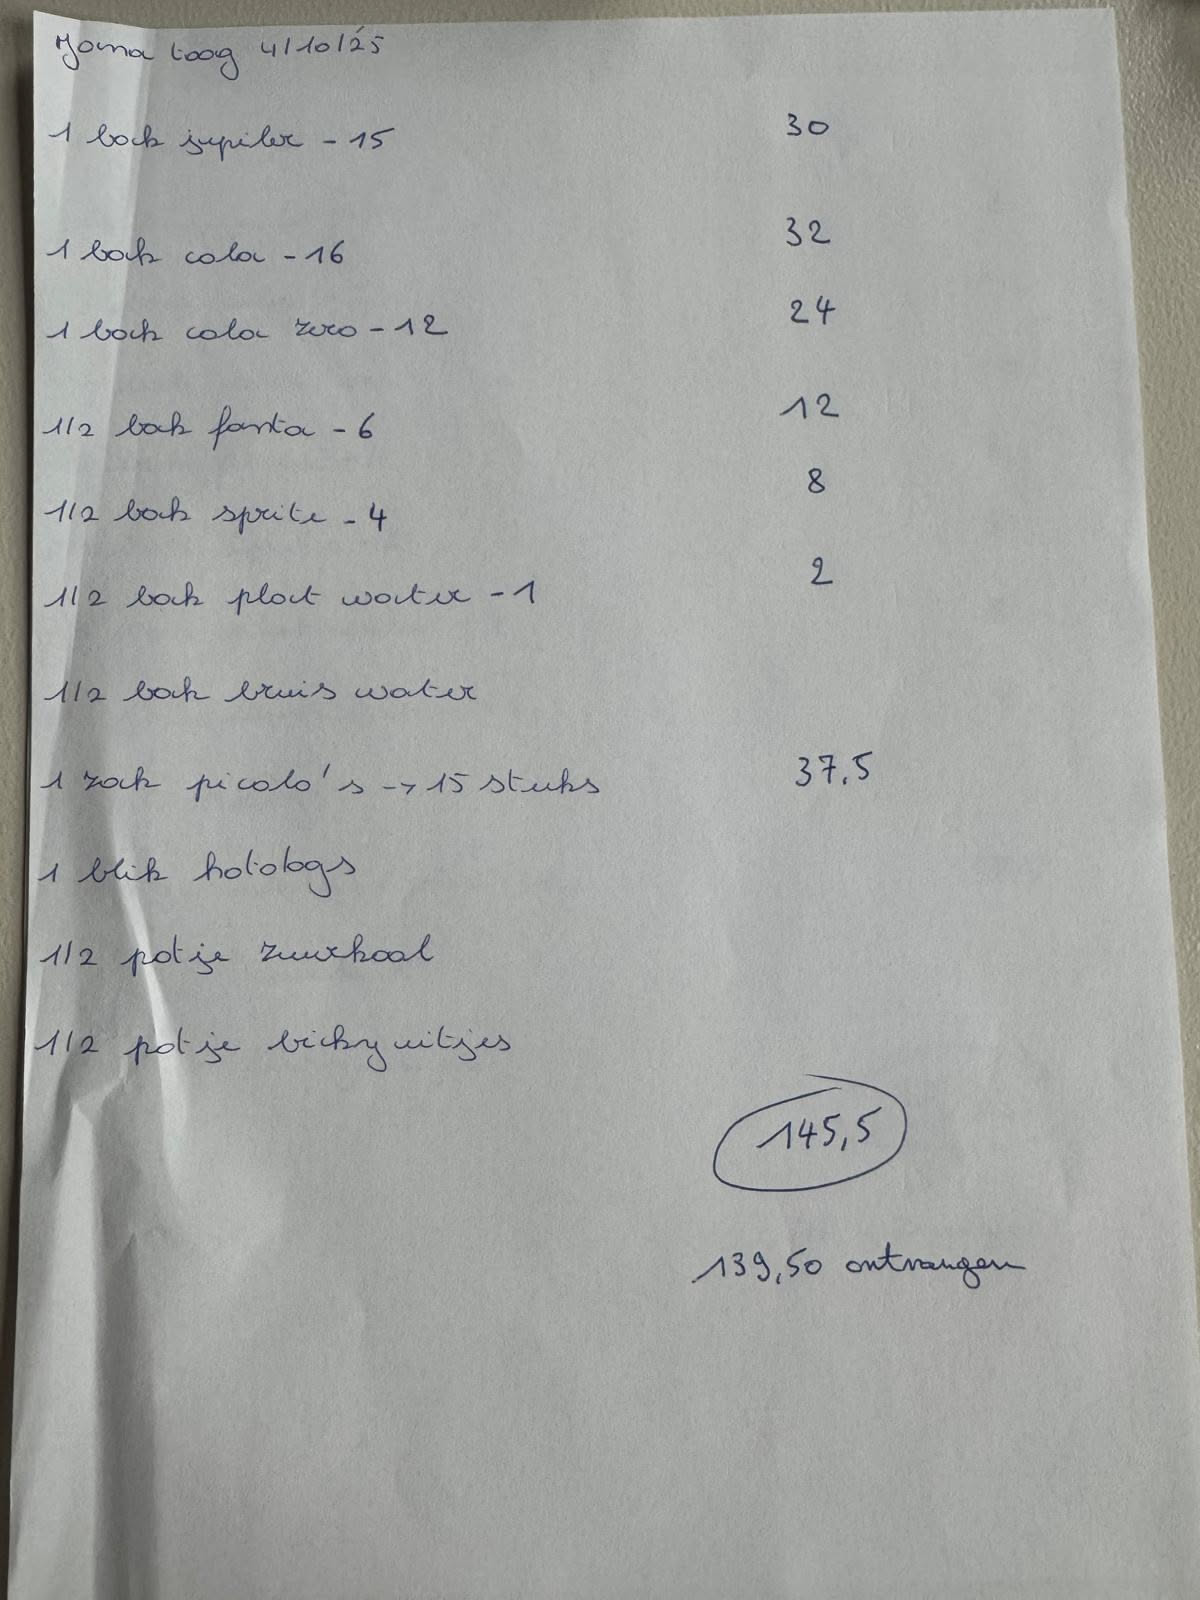 Joma toog 4/10/25
1 back jupiler - 15 30
1 bak cola - 16 32
1 back cola zero - 12 24
1/2 bak fanta - 6 12
1/2 bak sprite - 4 8
1/2 bak plat water - 1 2
1/2 bak bruis water
1 zak picolo's -> 15 stuks 37.5
1 blik hotdogs
1/2 potje zuurkool
1/2 potje bicky uitjes
145,5
139,50 ontvangen